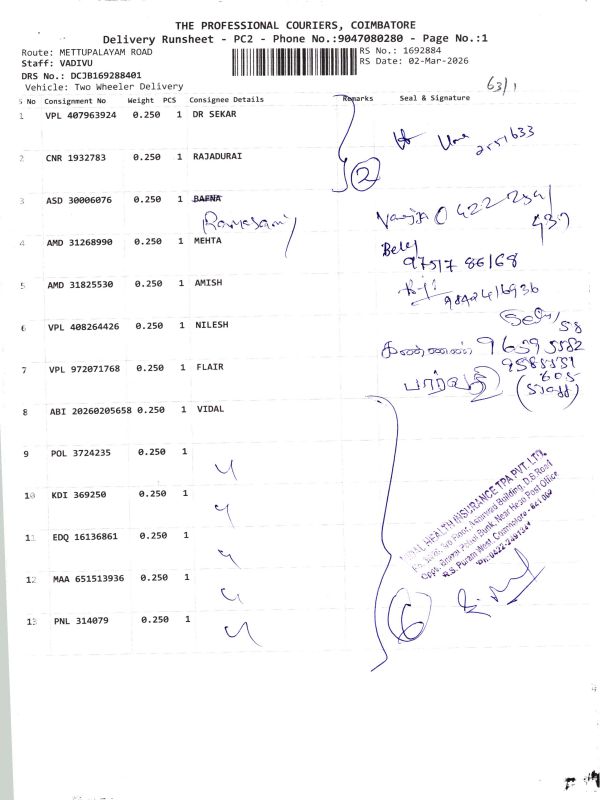 THE PROFESSIONAL COURIERS, COIMBATORE
Delivery Runsheet - PC2 - Phone No.:9047080280 - Page No.:1
Route: METTUPALAYAM ROAD RS No.: 1692884
Staff: VADIVU RS Date: 02-Mar-2026
DRS No.: DCJB169288401
Vehicle: Two Wheeler Delivery 63/1
S No Consignment No Weight PCS Consignee Details Remarks Seal & Signature
1 VPL 407963924 0.250 1 DR SEKAR
2551633
2 CNR 1932783 0.250 1 RAJADURAI
2
3 ASD 30006076 0.250 1 BAFNA
Ramasamy
0422-254
437
4 AMD 31268990 0.250 1 MEHTA
97517 86168
5 AMD 31825530 0.250 1 AMISH
9842416936
6 VPL 408264426 0.250 1 NILESH
58
கண்ணன் 9 6395582
7 VPL 972071768 0.250 1 FLAIR
பார்வதி
605
(staff)
8 ABI 20260205658 0.250 1 VIDAL
9 POL 3724235 0.250 1
10 KDI 369250 0.250 1
11 EDQ 16136861 0.250 1
12 MAA 651513936 0.250 1
13 PNL 314079 0.250 1
6
VIDAL HEALTH INSURANCE TPA PVT. LTD.
Floor, Building, D.B.Road
Opp. Petrol Bunk, Near Head Post Office
R.S. Puram West, Coimbatore - 641 002
Ph: 0422-2491241